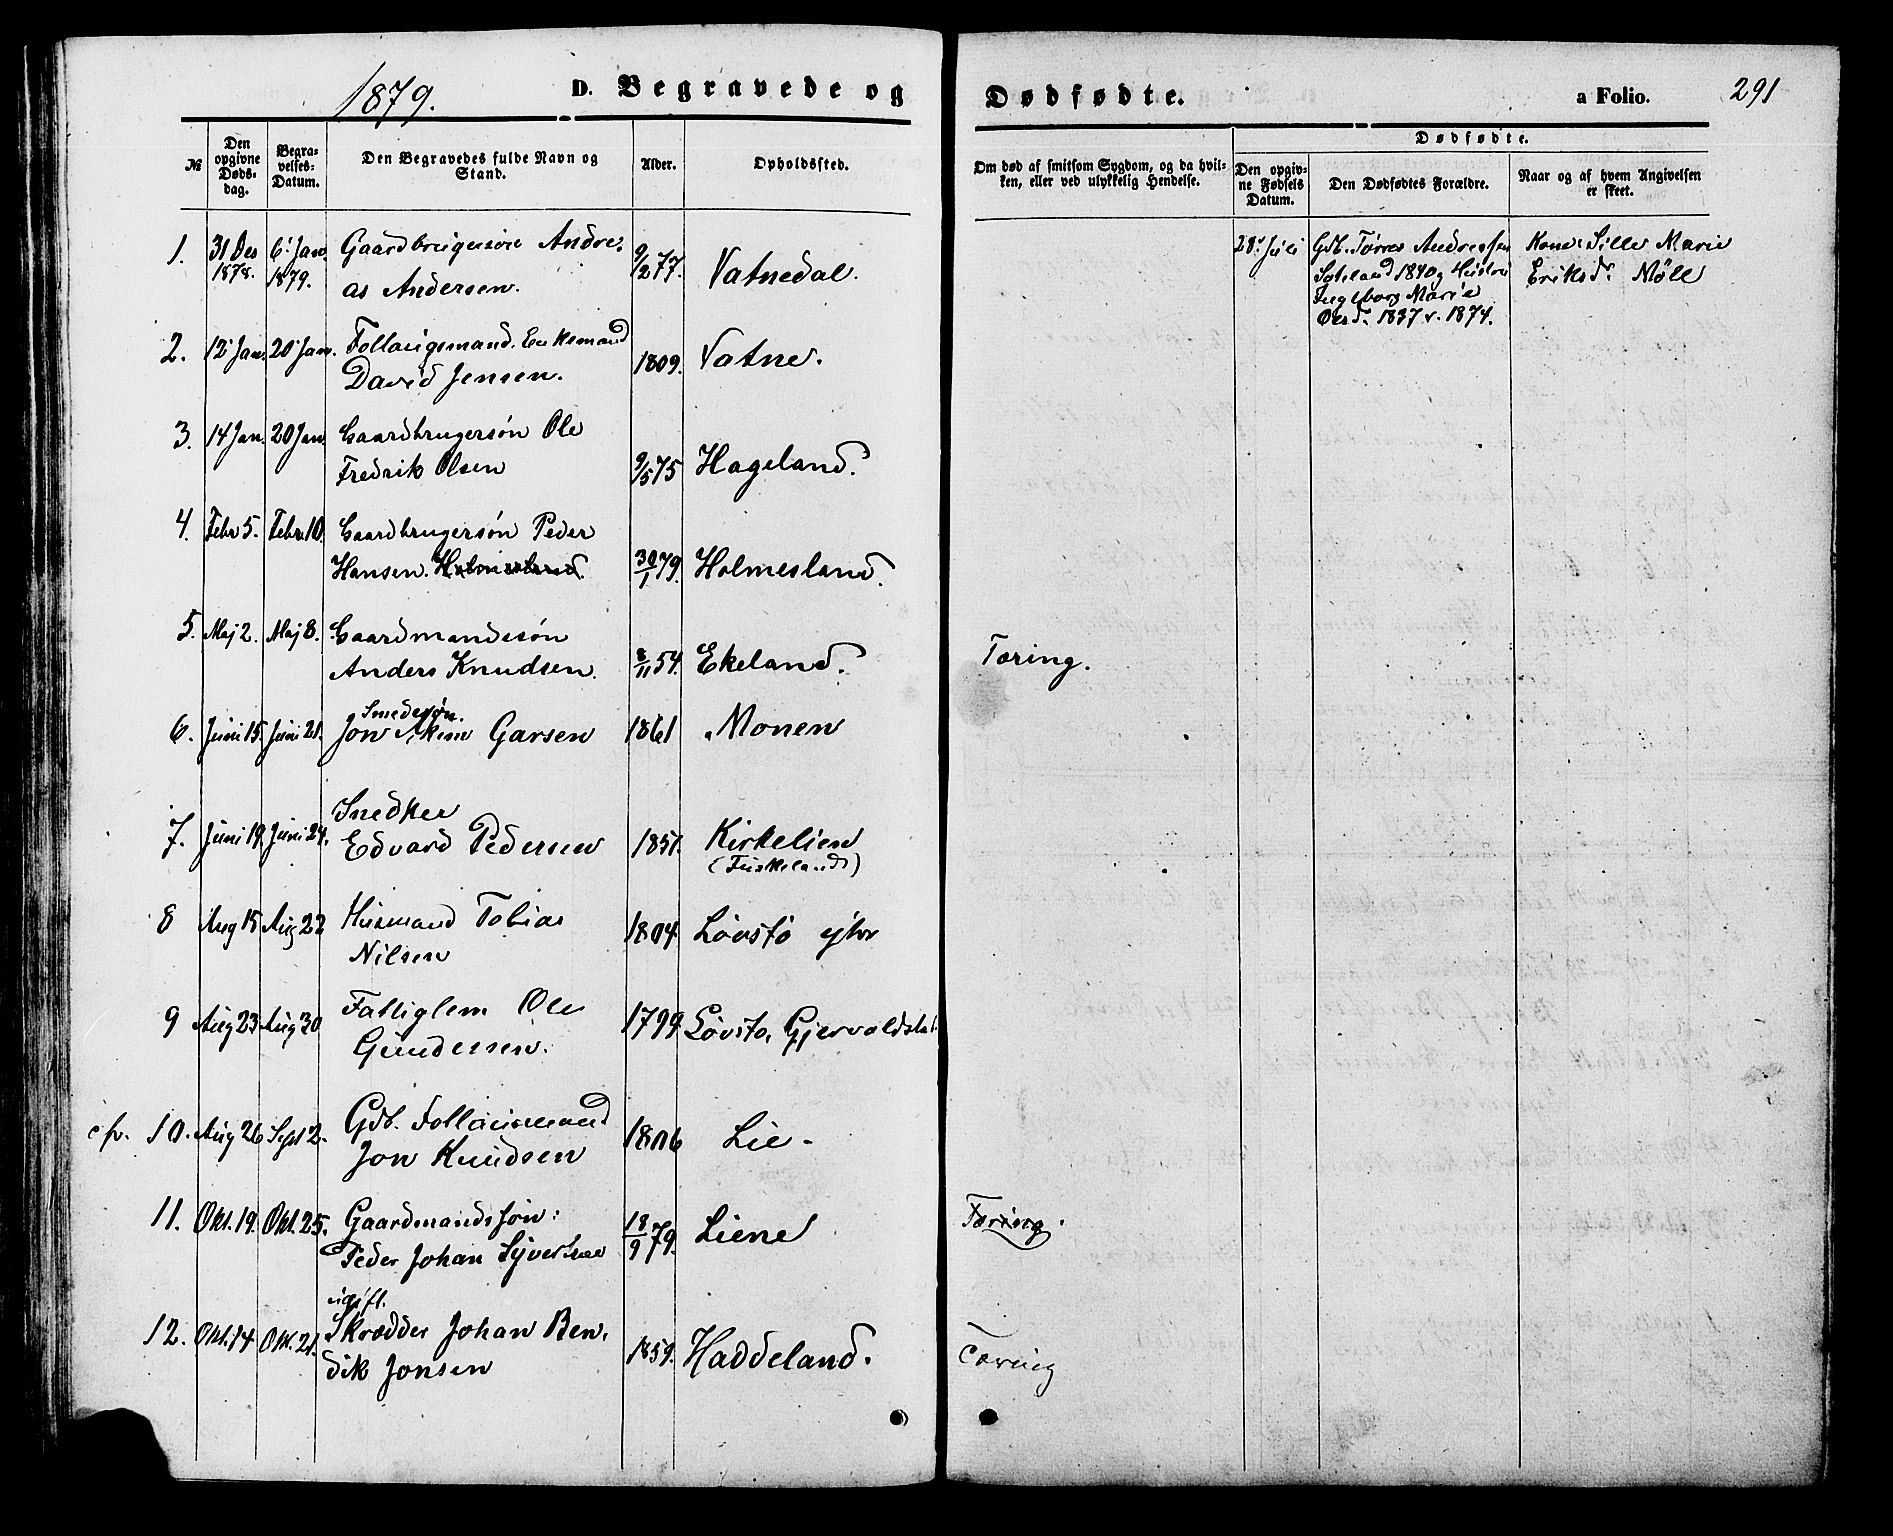 1879.
D. Begravede og
Dødfødte.
a Folio.
291
№
Den opgivne Døds-dag.
Begra-velses-Datum.
Den Begravedes fulde Navn og Stand.
Alder.
Opholdssted.
Om død af smitsom Sygdom, og da hvil-ken, eller ved ulykkelig Hendelse.
Dødfødte.
Den opgiv-ne Fødsels Datum.
Den Dødfødtes Forældre.
Naar og af hvem Angivelsen er skeet.
1. 31 Des 6. Jan Gaardbrugersøn Andre- 9/2 77. Vatnedal.
1878. 1879. as Andersen.
28. Juli Gdb. Tørres Andreassen Kone Sille Marie
1840 og Hustru Eriksd. Møll
Ingeborg Marie
1837 v. 1874.
2. 12 Jan. 20 Jan. Follaugsmand. Enkemand 1809. Vatne.
David Jensen.
3. 14 Jan. 20 Jan. Gaardbrugersøn Ole
Fredrik Olsen 9/5 75 Hageland.
4. Febr 5. Febr. 10. Gaardbrugersøn Peder
Hansen. Holmesland. 30/1 79. Holmesland.
5. Maj 2. Maj 8. Gaardmandssøn
Anders Knudsen. 8/11 54. Ekeland. Tæring.
Smedesøn.
6. Juni 15. Juni 21. Jon Garsen 1861 Monen
7. Juni 19. Juni 24. Snedker
Edvard Pedersen 1851. Kirkelien
(Fuskeland)
8 Aug 15 Aug 22 Husmand Tobias 1804. Løvstø ytre
Nilsen
9 Aug 23 Aug 30 Fattiglem Ole 1799. Løvstø,
Gundersen.
cfr. 10. Aug 26 Sept 2. Gdb. Follaugsmand 1806 Lie.
Jon Knudsen
11. Okt. 19. Okt. 25. Gaardmandssøn: 18/9 79. Liene Tæring.
Peder Johan Syvertsen
ugift.
12. Okt. 14 Okt. 21. Skrædder Johan Ben- 1859. Haddeland. Tæring
dik Jonsen